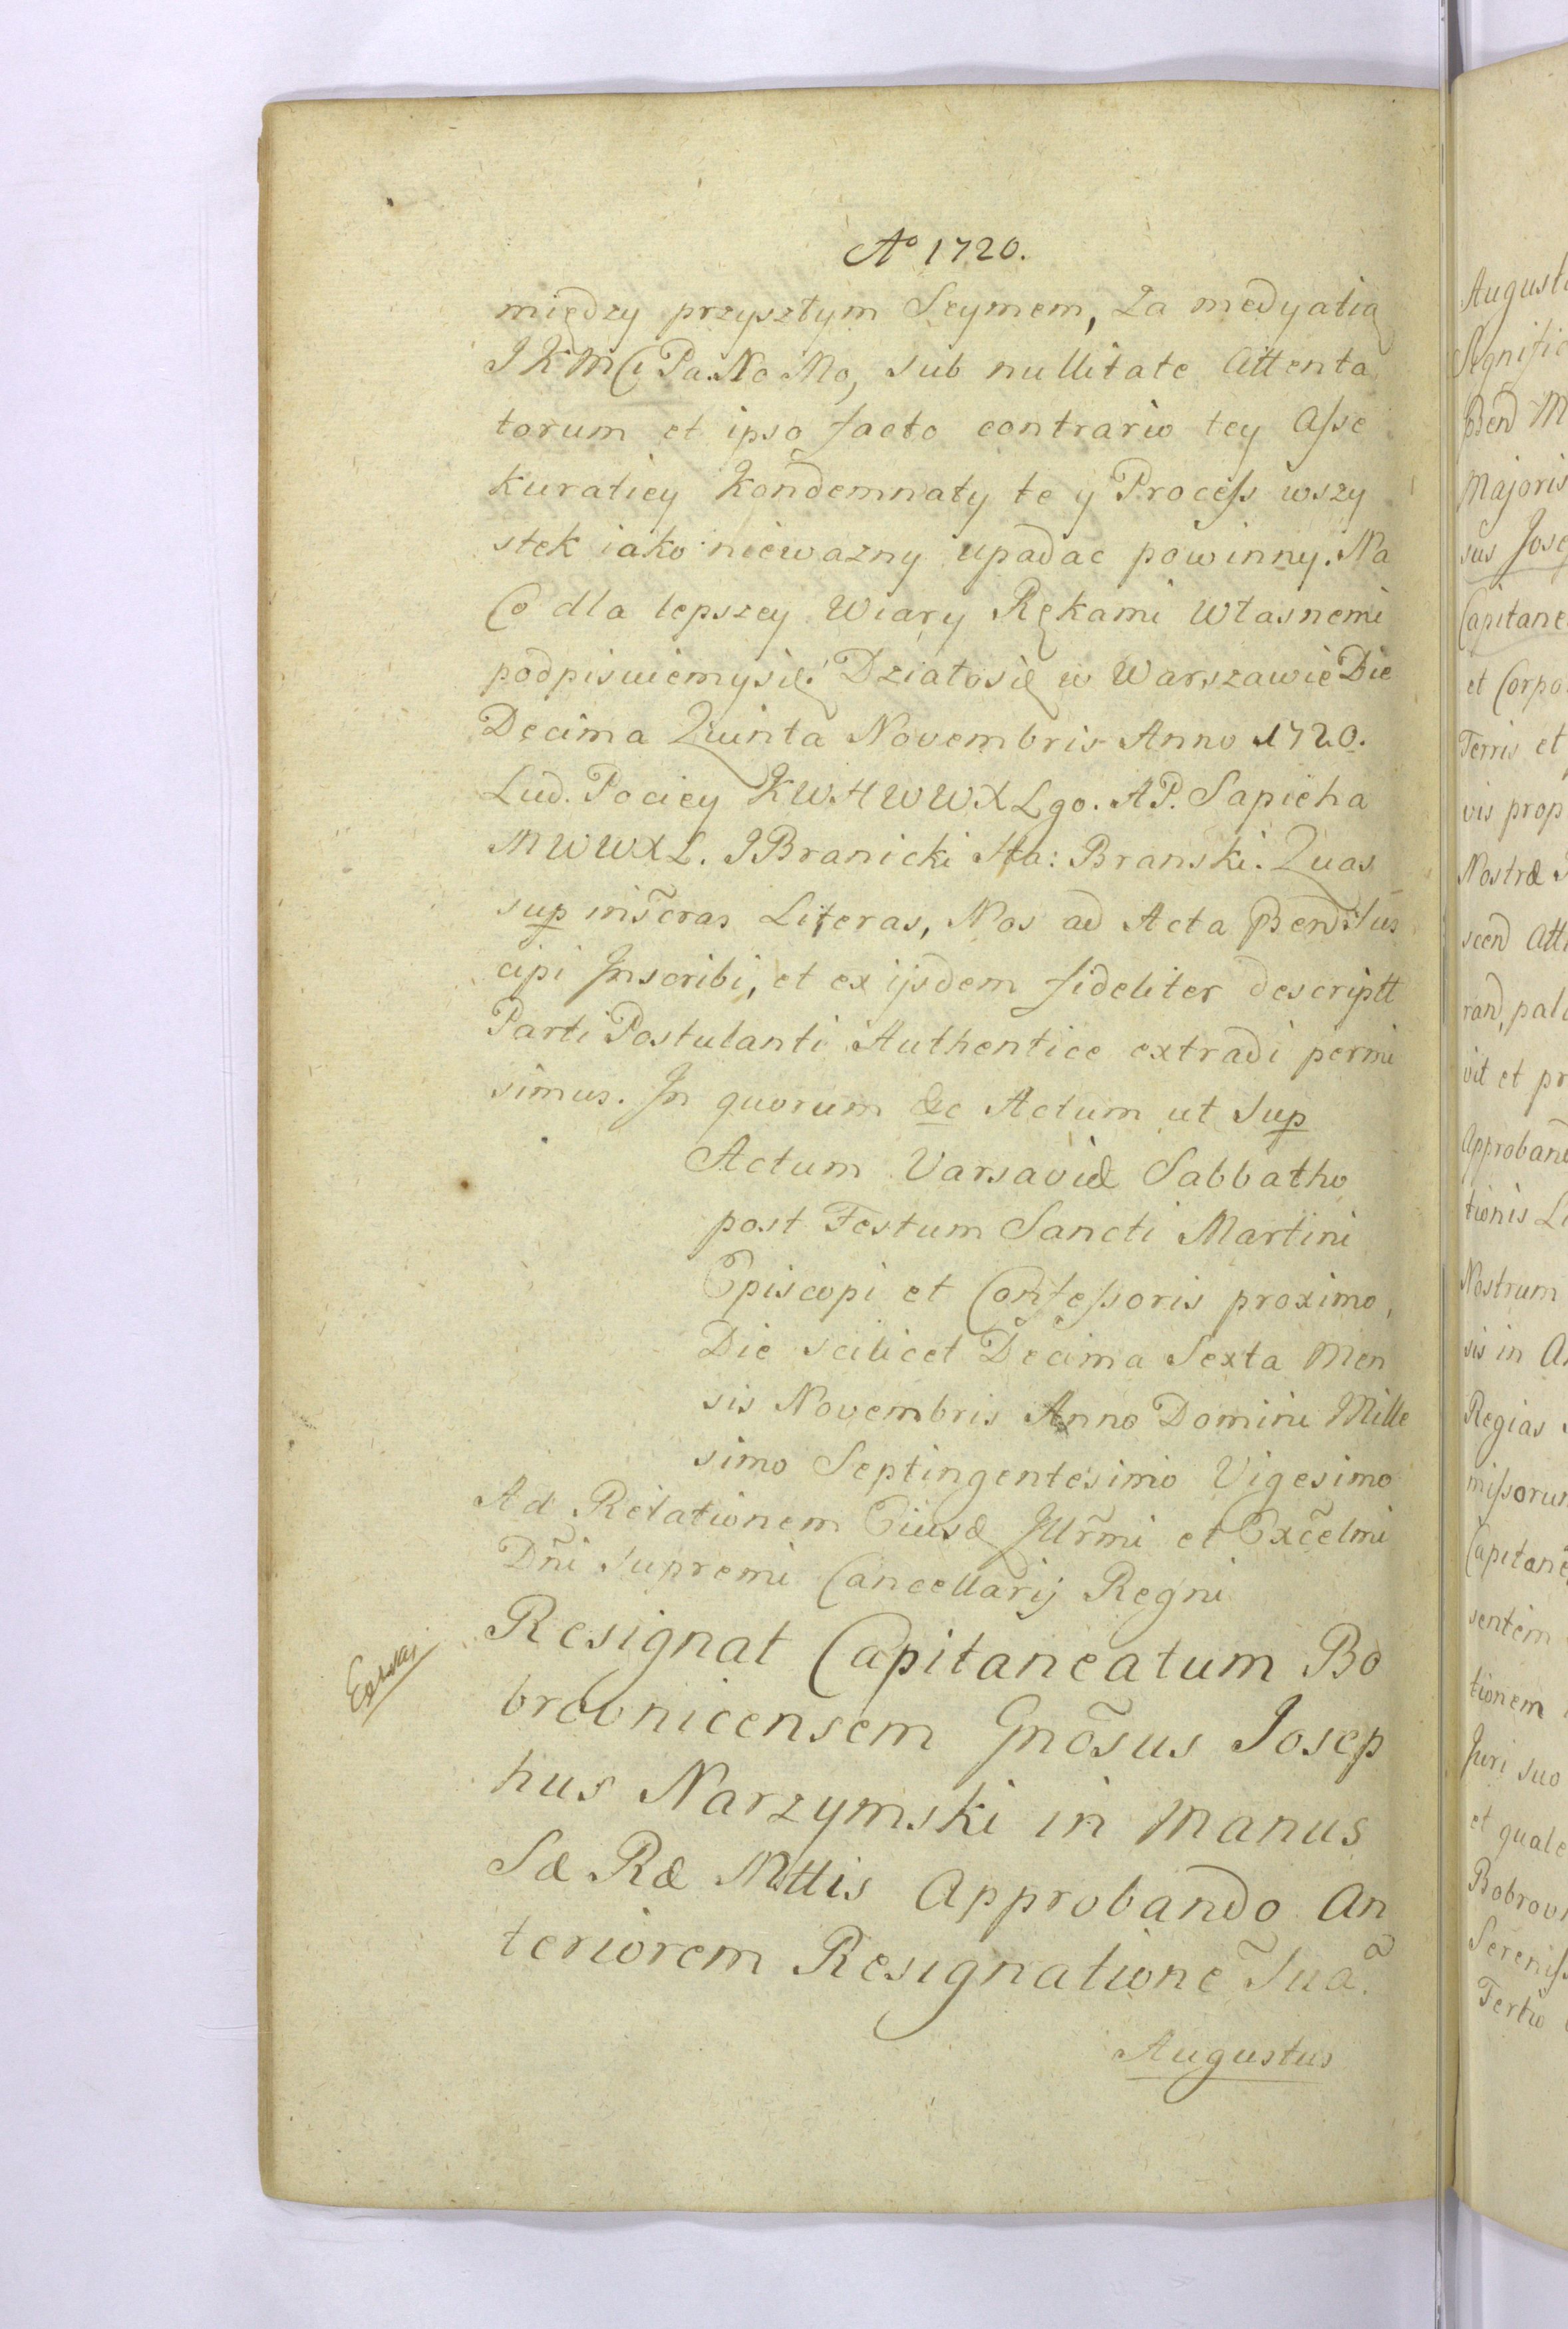 Aº 1720.
między przyszłym Seymem, Za medyatią
JKMCi Pa. No Mo, sub nullitate Attenta
torum et ipso facto contrario tey Asse
kuratiey kondemnaty te y Process wszy
stek iako niewazny upadac powinny. Na
Co dla lepszey Wiary Rękami Własnemi
podpisuiemysię. Działosię w Warszawie Die
Decima Quinta Novembris Anno 1720.
Lud. Pociey KWHWWXLgo. AP. Sapieha
MWWXL. JBranicki Sta: Branski. Quas
sup insc̃ras Literas, Nos ad Acta p̱̃end Sus
cipi Inscribi, et ex ijsdem fideliter descriptt
Parti Postulanti Authentice extradi permi
simus. In quorum &c Actum ut Sup
Actum Varsaviæ Sabbatho
post Festum Sancti Martini
Episcopi et Confessoris proximo,
Die scilicet Decima Sexta Men
sis Novembris Anno Domini Mille
simo Septingentesimo Vigesimo
Ad Relationem Eiusd Illr̃mi et Exc̃elmi
Dñi Supremi Cancellarij Regni
Resignat Capitaneatum Bo
brovnicensem Gnõsus Josep
hus Narzymski in Manus
Sæ Ræ Mttis Approbando An
teriorem Resignationẽ Suã.
Augustus
Augusti
Bend M
Majoris
sus Jose
Capitane
et Corpo
Terris et
vis prop
Nostræ
scend Att
rand, pal
vit et pr
Approband
tionis Li
Nostrum
sis in A
Regias
missorum
Capitane
sentem
tionem
Juri suo
et quale
Bobrovn
Sereniss
Tertio